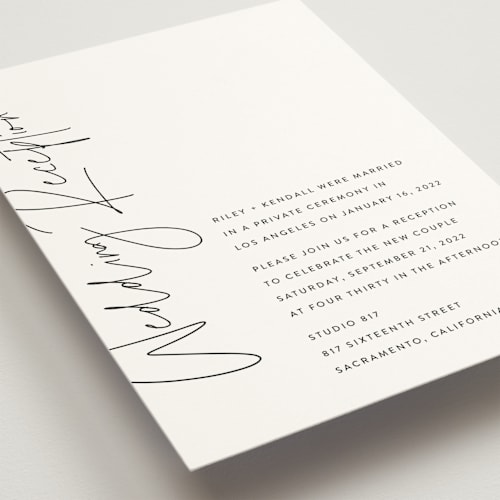 Wedding Reception
RILEY + KENDALL WERE MARRIED
IN A PRIVATE CEREMONY IN
LOS ANGELES ON JANUARY 16, 2022
PLEASE JOIN US FOR A RECEPTION
TO CELEBRATE THE NEW COUPLE
SATURDAY, SEPTEMBER 21, 2022
AT FOUR THIRTY IN THE AFTERNOON
STUDIO 817
817 SIXTEENTH STREET
SACRAMENTO, CALIFORNIA